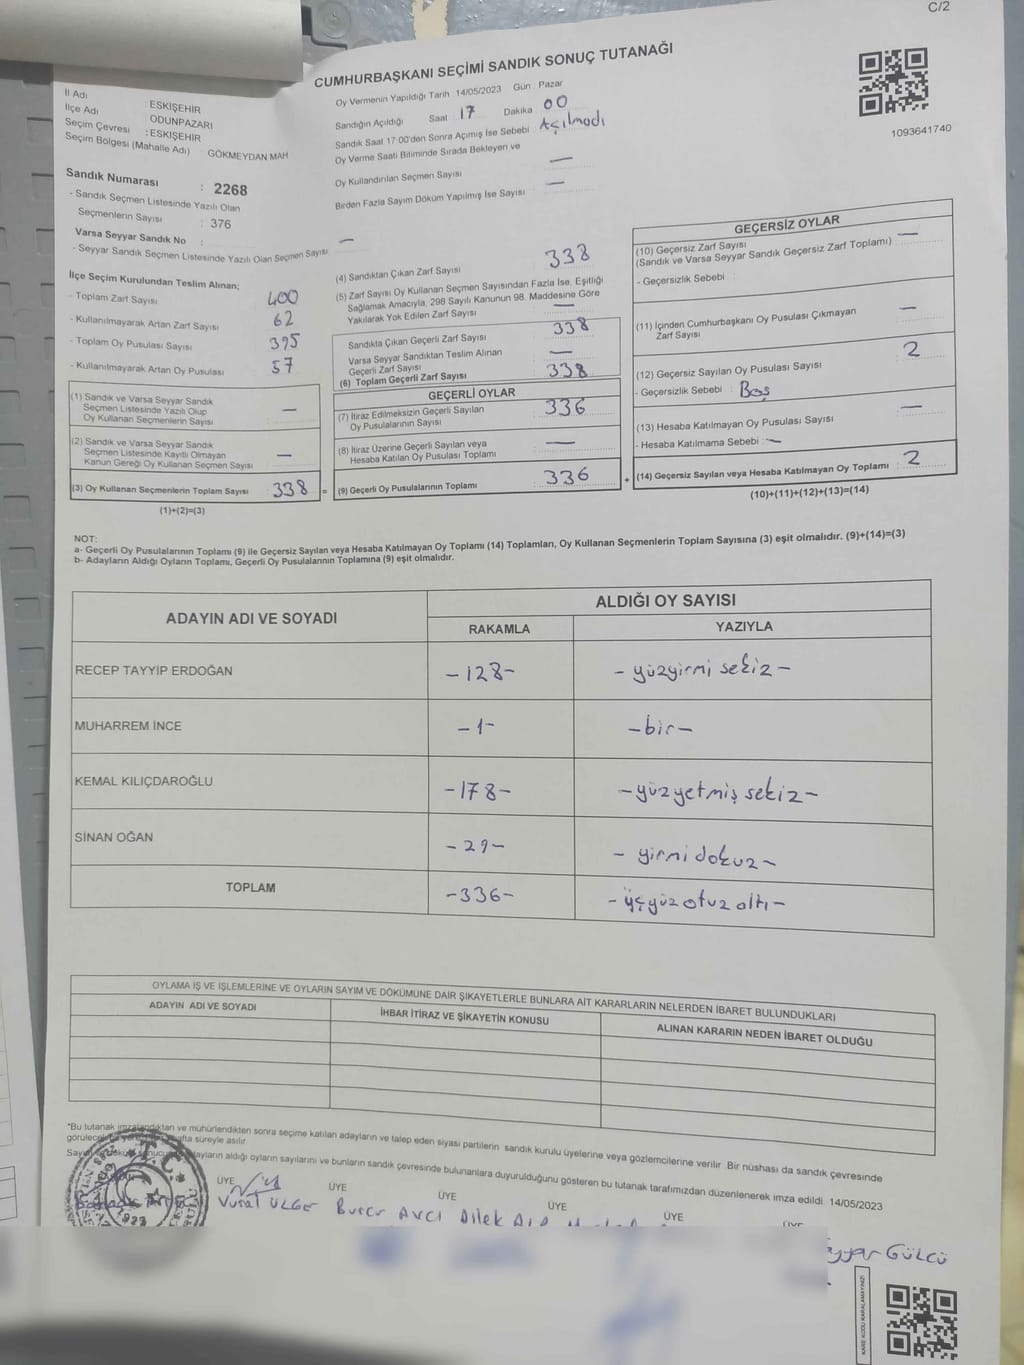 C/2
CUMHURBAŞKANI SEÇİMİ SANDIK SONUÇ TUTANAĞI
İl Adı : ESKİŞEHİR
İlçe Adı : ODUNPAZARI
Seçim Çevresi : ESKİŞEHİR
Seçim Bölgesi (Mahalle Adı) GÖKMEYDAN MAH
Oy Vermenin Yapıldığı Tarih 14/05/2023 Gün : Pazar
Sandığın Açıldığı Saat 17 Dakika 00
Sandık Saat 17:00'den Sonra Açımış İse Sebebi : Açılmadı
Oy Verme Saati Bitiminde Sırada Bekleyen ve
Oy Kullandırılan Seçmen Sayısı —
Birden Fazla Sayım Döküm Yapılmış İse Sayısı —
1093641740
Sandık Numarası : 2268
- Sandık Seçmen Listesinde Yazılı Olan
Seçmenlerin Sayısı : 376
Varsa Seyyar Sandık No :
- Seyyar Sandık Seçmen Listesinde Yazılı Olan Seçmen Sayısı —
İlçe Seçim Kurulundan Teslim Alınan;
- Toplam Zarf Sayısı 400
- Kullanılmayarak Artan Zarf Sayısı 62
- Toplam Oy Pusulası Sayısı 395
- Kullanılmayarak Artan Oy Pusulası 57
(1) Sandık ve Varsa Seyyar Sandık
Seçmen Listesinde Yazılı Olup
Oy Kullanan Seçmenlerin Sayısı —
(2) Sandık ve Varsa Seyyar Sandık
Seçmen Listesinde Kayıtlı Olmayan
Kanun Gereği Oy Kullanan Seçmen Sayısı —
(3) Oy Kullanan Seçmenlerin Toplam Sayısı 338 =
(1)+(2)=(3)
(4) Sandıktan Çıkan Zarf Sayısı 338
(5) Zarf Sayısı Oy Kullanan Seçmen Sayısından Fazla İse, Eşitliği
Sağlamak Amacıyla, 298 Sayılı Kanunun 98. Maddesine Göre
Yakılarak Yok Edilen Zarf Sayısı —
Sandıkta Çıkan Geçerli Zarf Sayısı 338
Varsa Seyyar Sandıktan Teslim Alınan
Geçerli Zarf Sayısı —
(6) Toplam Geçerli Zarf Sayısı 338
GEÇERLİ OYLAR
(7) İtiraz Edilmeksizin Geçerli Sayılan
Oy Pusulalarının Sayısı 336
(8) İtiraz Üzerine Geçerli Sayılan veya
Hesaba Katılan Oy Pusulası Toplamı —
(9) Geçerli Oy Pusulalarının Toplamı 336 +
GEÇERSİZ OYLAR
(10) Geçersiz Zarf Sayısı —
(Sandık ve Varsa Seyyar Sandık Geçersiz Zarf Toplamı)
- Geçersizlik Sebebi :
(11) İçinden Cumhurbaşkanı Oy Pusulası Çıkmayan
Zarf Sayısı —
(12) Geçersiz Sayılan Oy Pusulası Sayısı 2
- Geçersizlik Sebebi : Boş
(13) Hesaba Katılmayan Oy Pusulası Sayısı —
- Hesaba Katılmama Sebebi : —
(14) Geçersiz Sayılan veya Hesaba Katılmayan Oy Toplamı 2
(10)+(11)+(12)+(13)=(14)
NOT:
a- Geçerli Oy Pusulalarının Toplamı (9) ile Geçersiz Sayılan veya Hesaba Katılmayan Oy Toplamı (14) Toplamları, Oy Kullanan Seçmenlerin Toplam Sayısına (3) eşit olmalıdır. (9)+(14)=(3)
b- Adayların Aldığı Oyların Toplamı, Geçerli Oy Pusulalarının Toplamına (9) eşit olmalıdır.
ADAYIN ADI VE SOYADI
ALDIĞI OY SAYISI
RAKAMLA YAZIYLA
RECEP TAYYİP ERDOĞAN -128- -yüzyirmi sekiz-
MUHARREM İNCE -1- -bir-
KEMAL KILIÇDAROĞLU -178- -yüzyetmiş sekiz-
SİNAN OĞAN -29- -yirmi dokuz-
TOPLAM -336- -üçyüz otuz altı-
OYLAMA İŞ VE İŞLEMLERİNE VE OYLARIN SAYIM VE DÖKÜMÜNE DAİR ŞİKAYETLERLE BUNLARA AİT KARARLARIN NELERDEN İBARET BULUNDUKLARI
ADAYIN ADI VE SOYADI İHBAR İTİRAZ VE ŞİKAYETİN KONUSU ALINAN KARARIN NEDEN İBARET OLDUĞU
*Bu tutanak imzalandıktan ve mühürlendikten sonra seçime katılan adayların ve talep eden siyasi partilerin sandık kurulu üyelerine veya gözlemcilerine verilir. Bir nüshası da sandık çevresinde
görülecek bir yere hafta süreyle asılır.
adayların aldığı oyların sayılarını ve bunların sandık çevresinde bulunanlara duyurulduğunu gösteren bu tutanak tarafımızdan düzenlenerek imza edildi. 14/05/2023
ÜYE ÜYE ÜYE ÜYE ÜYE ÜYE
Vural ÜLGER Burcu AVCI Dilek
GÜLCÜ
T.C.
KARE KODU KARALAMAYINIZ!